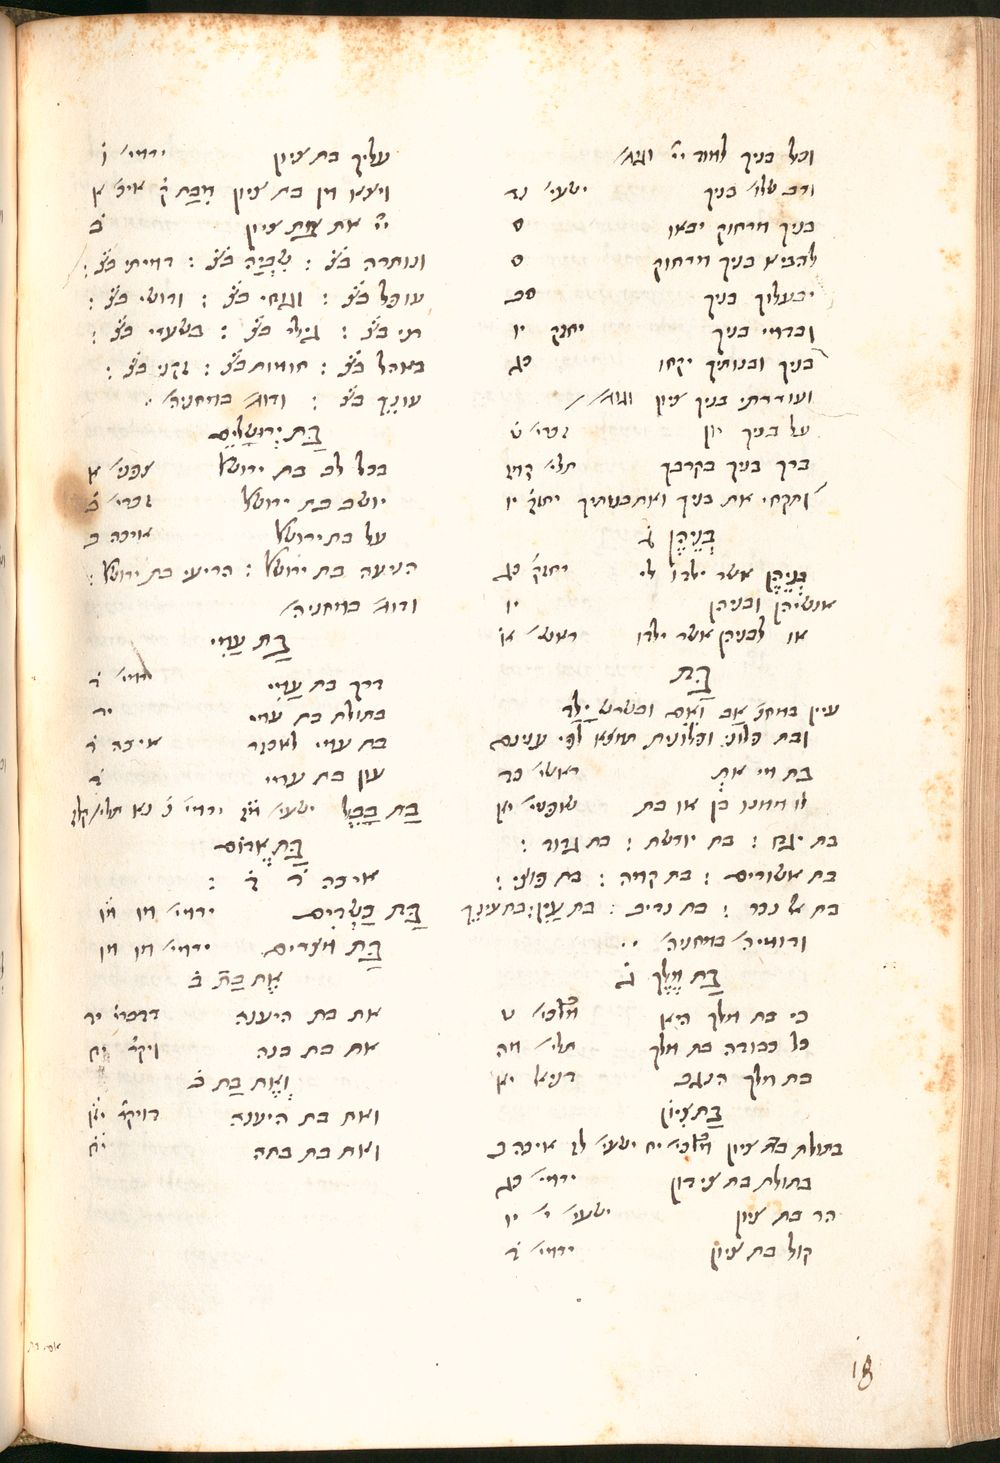 וכל בניך למודי יי וגו׳
ורב שלו׳ בניך ישעי׳ נד
בניך מרחוק יבאו ס
להביא בניך מרחוק ס
יבעלוך בניך סב
ובדמי בניך יחזק׳ יו
בניך ובנותיך יקחו כג
ועוררתי בניך ציון וגו׳
על בניך יון זכרי׳ ט
ברך בניך בקרבך תלי׳ קמז
ותקחי את בניך ואת בנותיך יחזק׳ יו
בְּנֵיהֶן ג
בְּנֵיהֶן אשר ילדו לי יחזק׳ כג
אנשיהן ובניהן יו
או לבניהן אשר ילדו ראשי׳ לא
בַּת
עיין במחנ׳ אב ואם ובשרש ילד
ובת פלוני ופלונית תמצא לפי ענינם
בת מי את ראשי׳ כד
לו ממנו בן או בת שופטי׳ יא
בת יפתח : בת יורשת : בת גדוד :
בת אשורים : בת קמה : בת פוצי :
בת אל נכר : בת נדיב : בת עַיִן : בת עינֵךְ
ודומיה׳ במחניה׳
בַּת מֶלֶךְ ג
כי בת מלך היא מלכי׳ ט
כל כבודה בת מלך תלי׳ מה
בת מלך הנגב דניאל יא
בַּת צִיּוֹן
בתולת בת ציון מלכי׳ יט ישעי׳ לז איכה ב
בתולת בת צידון ישעי׳ כג
הר בת ציון ישעי׳ י יו
קול בת ציון ירמי׳ ד
עליך בת ציון ירמי׳ ו
ויצא מן בת ציון מִבַּת ק׳ איכ׳ א
יי׳ את בת ציון ב
ונותרה בצ׳ : שְׁבִיָּה בצ׳ : דמיתי בצ׳ :
עופל בצ׳ : וגחי בצ׳ : ודושי בצ׳ :
רני בצ׳ : גילי בצ׳ : בשערי בצ׳ :
באהל בצ׳ : חומת בצ׳ : זקני בצ׳ :
עונֵךְ בצ׳ : ודומ׳ במחניה׳
בַּת יְרוּשָׁלַיִם
בכל לב בת ירושל׳ צפני׳ א
יושב בת ירושל׳ זכרי׳
על בת ירושל׳ איכה ב
הניעה בת ירושל׳ : הריעי בת ירושל׳ :
ודומ׳ במחניה׳
בַּת עַמִּי
דרך בת עַמִּי ירמי׳ ד
בתולת בת עמי יד
בת עמי לאכזר איכה ד
עון בת עמי ד
בַּת בָּבֶל ישעי׳ מז ירמי׳ נ נא תלי׳ קלז
בַּת אֱדוֹם
איכה ד ד :
בַּת כַּשְׂדִּים ישעי׳ מז מז
בַּת מִצְרַיִם ירמי׳ מו מו
אֶת בַּת ב
את בת היענה דברי׳ יד
את בת בנה ויקר׳ יח
וְאֶת בַּת ב
ואת בת היענה ויקר׳ יא
ואת בת בתה יח
18